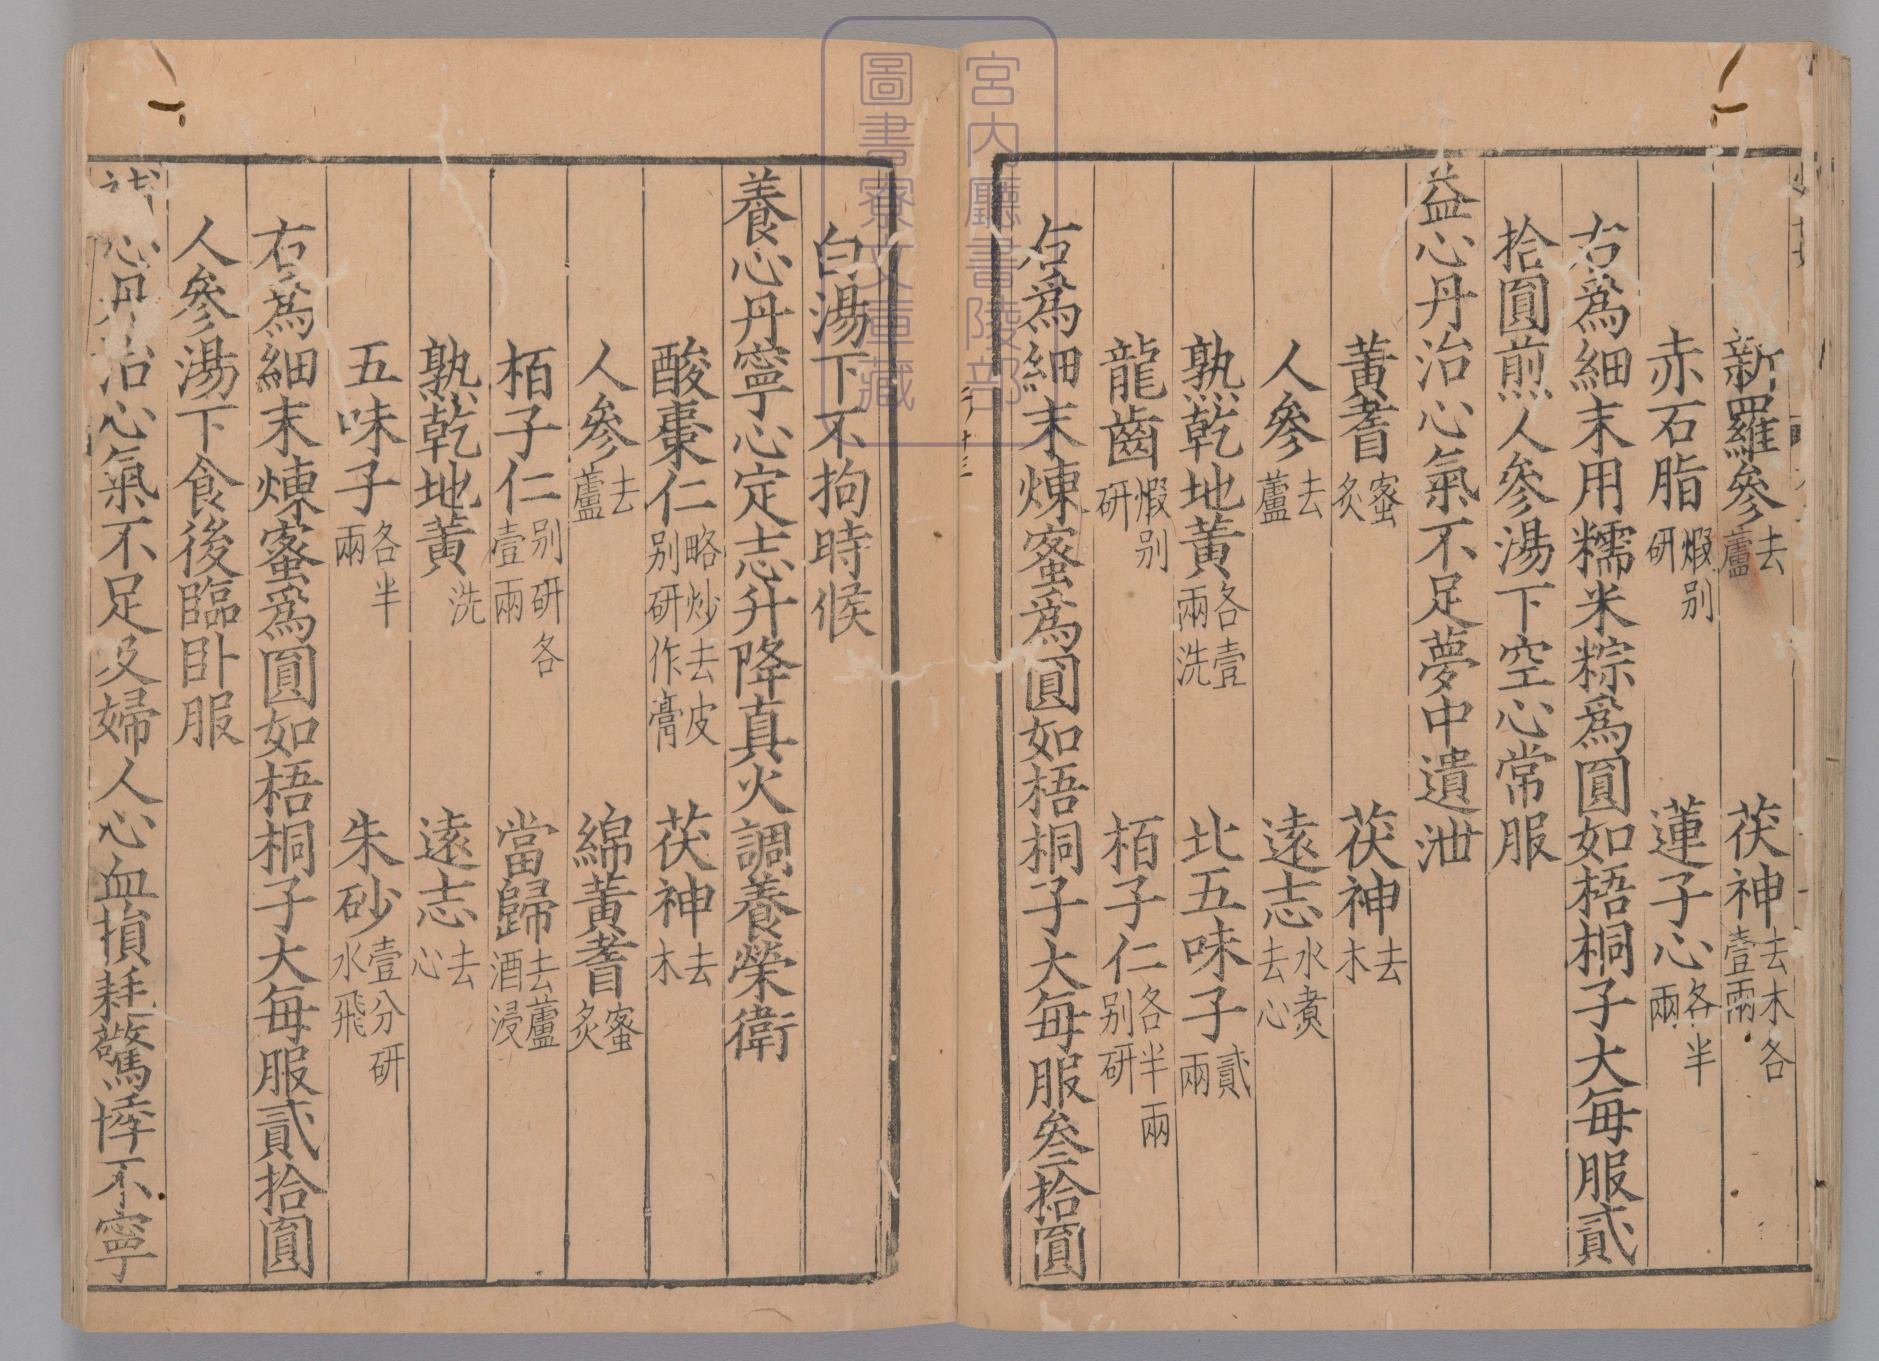 新羅參去蘆 茯神去木各壹兩
赤石脂煆別研 蓮子心各半兩
右爲細末用糯米粽爲圓如梧桐子大每服貳
拾圓煎人參湯下空心常服
益心丹治心氣不足夢中遺泄
黃耆蜜炙 茯神去木
人參去蘆 遠志水煮去心
熟乾地黃各壹兩洗 北五味子貳兩
龍齒煆別研 栢子仁各半兩別研
右爲細末煉蜜爲圓如梧桐子大每服叄拾圓
白湯下不拘時候
養心丹寧心定志升降真火調養榮衛
酸棗仁略炒去皮別研作膏 茯神去木
人參去蘆 綿黃耆蜜炙
栢子仁別研各壹兩 當歸去蘆酒浸
熟乾地黃洗 遠志去心
五味子各半兩 朱砂壹分研水飛
右爲細末煉蜜爲圓如梧桐子大每服貳拾圓
人參湯下食後臨臥服
心丹治心氣不足及婦人心血損耗驚悸不寧
宮內廳書陵部
圖書寮文庫藏